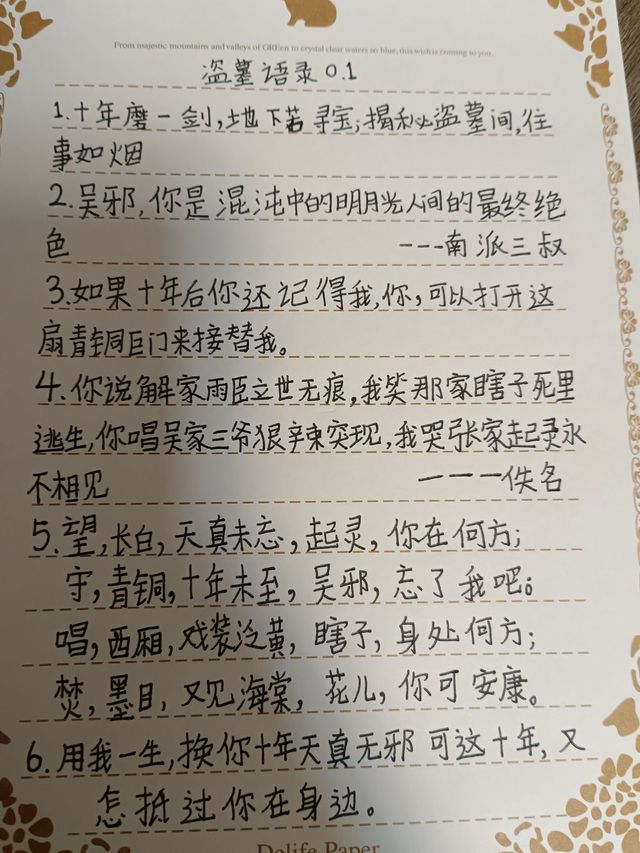 From majestic mountains and valleys of GREen to crystal clear waters so blue, this wish is coming to you.
盗墓语录0.1
1.十年磨一剑,地下若寻宝;揭秘盗墓间,往
事如烟
2.吴邪,你是混沌中的明月光人间的最终绝
色 ---南派三叔
3.如果十年后你还记得我,你,可以打开这
扇青铜巨门来接替我。
4.你说解家雨臣立世无痕,我笑那家瞎子死里
逃生,你唱吴家三爷狠辣突现,我哭张家起灵永
不相见 ---佚名
5.望,长白,天真未忘,起灵,你在何方;
守,青铜,十年未至,吴邪,忘了我吧。
唱,西厢,戏装泛黄,瞎子,身处何方;
焚,墨目,又见海棠,花儿,你可安康。
6.用我一生,换你十年天真无邪 可这十年,又
怎抵过你在身边。
Delife Paper